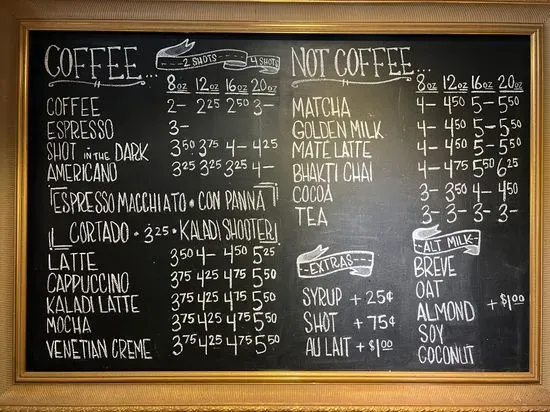 COFFEE...
2 SHOTS
4 SHOTS
8oz 12oz 16oz 20oz
COFFEE 2- 2²⁵ 2⁵⁰ 3-
ESPRESSO 3-
SHOT IN THE DARK 3⁵⁰ 3⁷⁵ 4- 4²⁵
AMERICANO 3²⁵ 3²⁵ 3²⁵ 4-
ESPRESSO MACCHIATO • CON PANNA
CORTADO • 3.25 • KALADI SHOOTER
LATTE 3⁵⁰ 4- 4⁵⁰ 5²⁵
CAPPUCCINO 3⁷⁵ 4²⁵ 4⁷⁵ 5⁵⁰
KALADI LATTE 3⁷⁵ 4²⁵ 4⁷⁵ 5⁵⁰
MOCHA 3⁷⁵ 4²⁵ 4⁷⁵ 5⁵⁰
VENETIAN CREME 3⁷⁵ 4²⁵ 4⁷⁵ 5⁵⁰
NOT COFFEE...
8oz 12oz 16oz 20oz
MATCHA 4- 4⁵⁰ 5- 5⁵⁰
GOLDEN MILK 4- 4⁵⁰ 5- 5⁵⁰
MATE LATTE 4- 4⁵⁰ 5- 5⁵⁰
BHAKTI CHAI 4- 4⁷⁵ 5⁵⁰ 6²⁵
COCOA 3- 3⁵⁰ 4- 4⁵⁰
TEA 3- 3- 3- 3-
EXTRAS
SYRUP + 25¢
SHOT + 75¢
AU LAIT + $1.00
ALT MILK
BREVE
OAT
ALMOND + $1.00
SOY
COCONUT